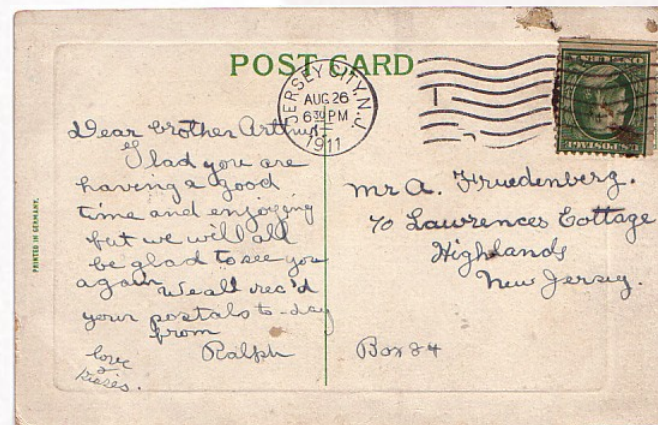 POST CARD
JERSEY CITY, N.J.
AUG 26
6 30 PM
1911
U.S. POSTAGE
Dear brother Arthur.
Glad you are
having a good
time and enjoying
but we will all
be glad to see you
again We all rec'd
your postals to-day
from
Ralph
love
&
kisses.
Mr A. Fruedenberg.
70 Lawrences Cottage
Highlands
New Jersey.
Box 84
PRINTED IN GERMANY.